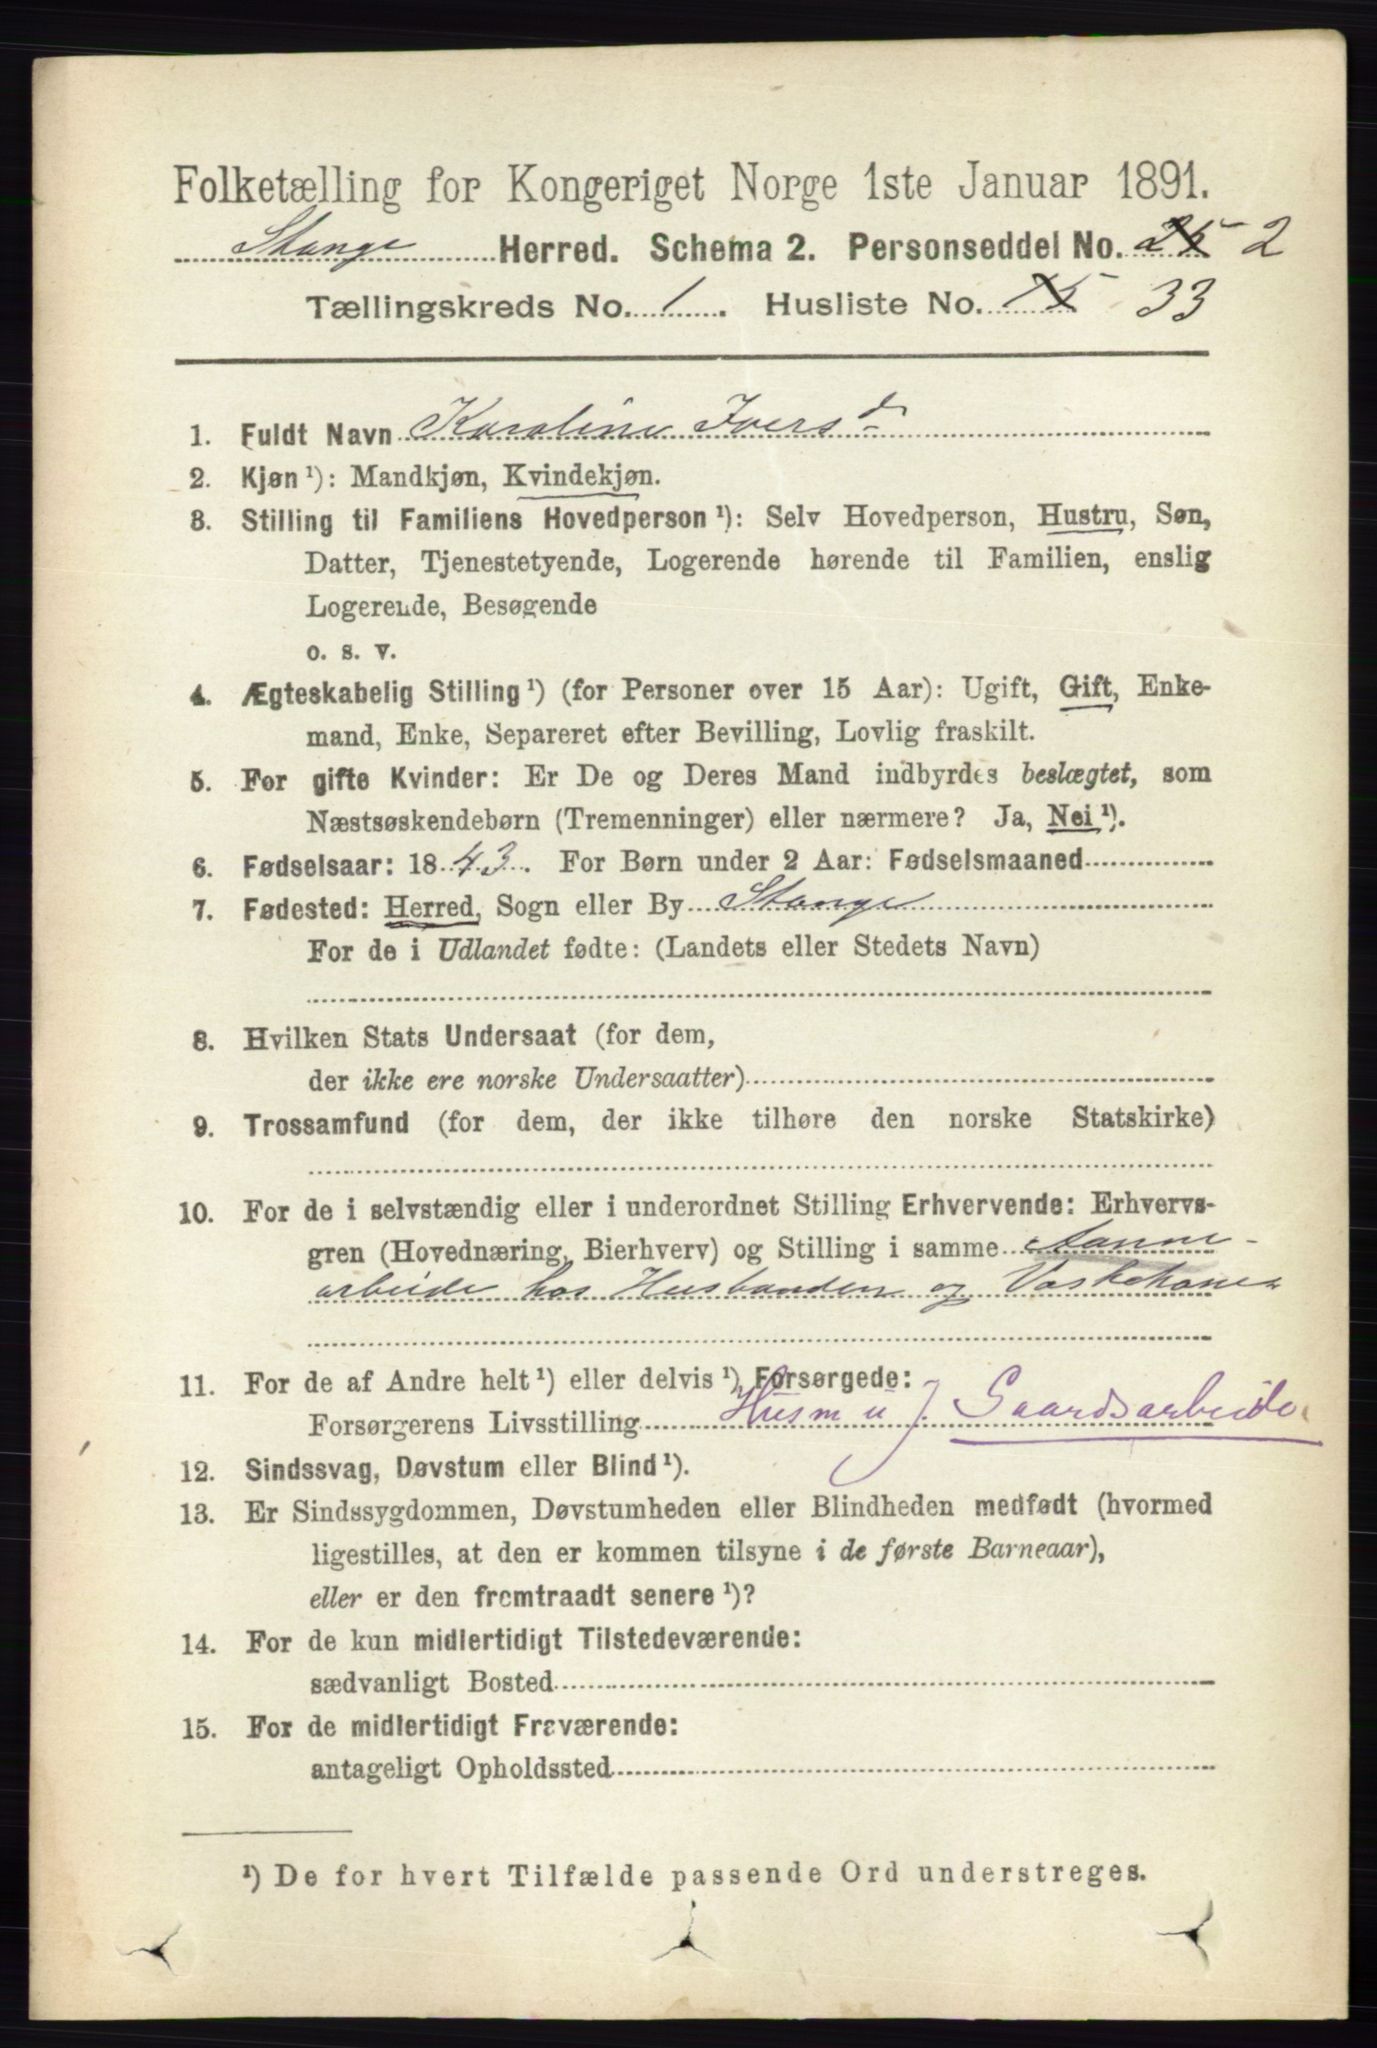 Folketælling for Kongeriget Norge 1ste Januar 1891.
Stange Herred. Schema 2. Personseddel No. 25 2
Tællingskreds No. 1. Husliste No. 15 33
1. Fuldt Navn Karoline Iversd
2. Kjøn ¹): Mandkjøn, Kvindekjøn.
3. Stilling til Familiens Hovedperson ¹): Selv Hovedperson, Hustru, Søn,
Datter, Tjenestetyende, Logerende hørende til Familien, enslig
Logerende, Besøgende
o. s. v.
4. Ægteskabelig Stilling ¹) (for Personer over 15 Aar): Ugift, Gift, Enke-
mand, Enke, Separeret efter Bevilling, Lovlig fraskilt.
5. For gifte Kvinder: Er De og Deres Mand indbyrdes beslægtet, som
Næstsøskendebørn (Tremenninger) eller nærmere? Ja, Nei ¹).
6. Fødselsaar: 1843. For Børn under 2 Aar: Fødselsmaaned
7. Fødested: Herred, Sogn eller By Stange
For de i Udlandet fødte: (Landets eller Stedets Navn)
8. Hvilken Stats Undersaat (for dem,
der ikke ere norske Undersaatter)
9. Trossamfund (for dem, der ikke tilhøre den norske Statskirke)
10. For de i selvstændig eller i underordnet Stilling Erhvervende: Erhvervs-
gren (Hovednæring, Bierhverv) og Stilling i samme Aanne-
arbeide hos Husbonden og Vaskekone
11. For de af Andre helt ¹) eller delvis ¹) Forsørgede:
Forsørgerens Livsstilling Husm u J. Gaardsarbeide
12. Sindssvag, Døvstum eller Blind ¹).
13. Er Sindssygdommen, Døvstumheden eller Blindheden medfødt (hvormed
ligestilles, at den er kommen tilsyne i de første Barneaar),
eller er den fremtraadt senere ¹)?
14. For de kun midlertidigt Tilstedeværende:
sædvanligt Bosted
15. For de midlertidigt Fraværende:
antageligt Opholdssted
¹) De for hvert Tilfælde passende Ord understreges.